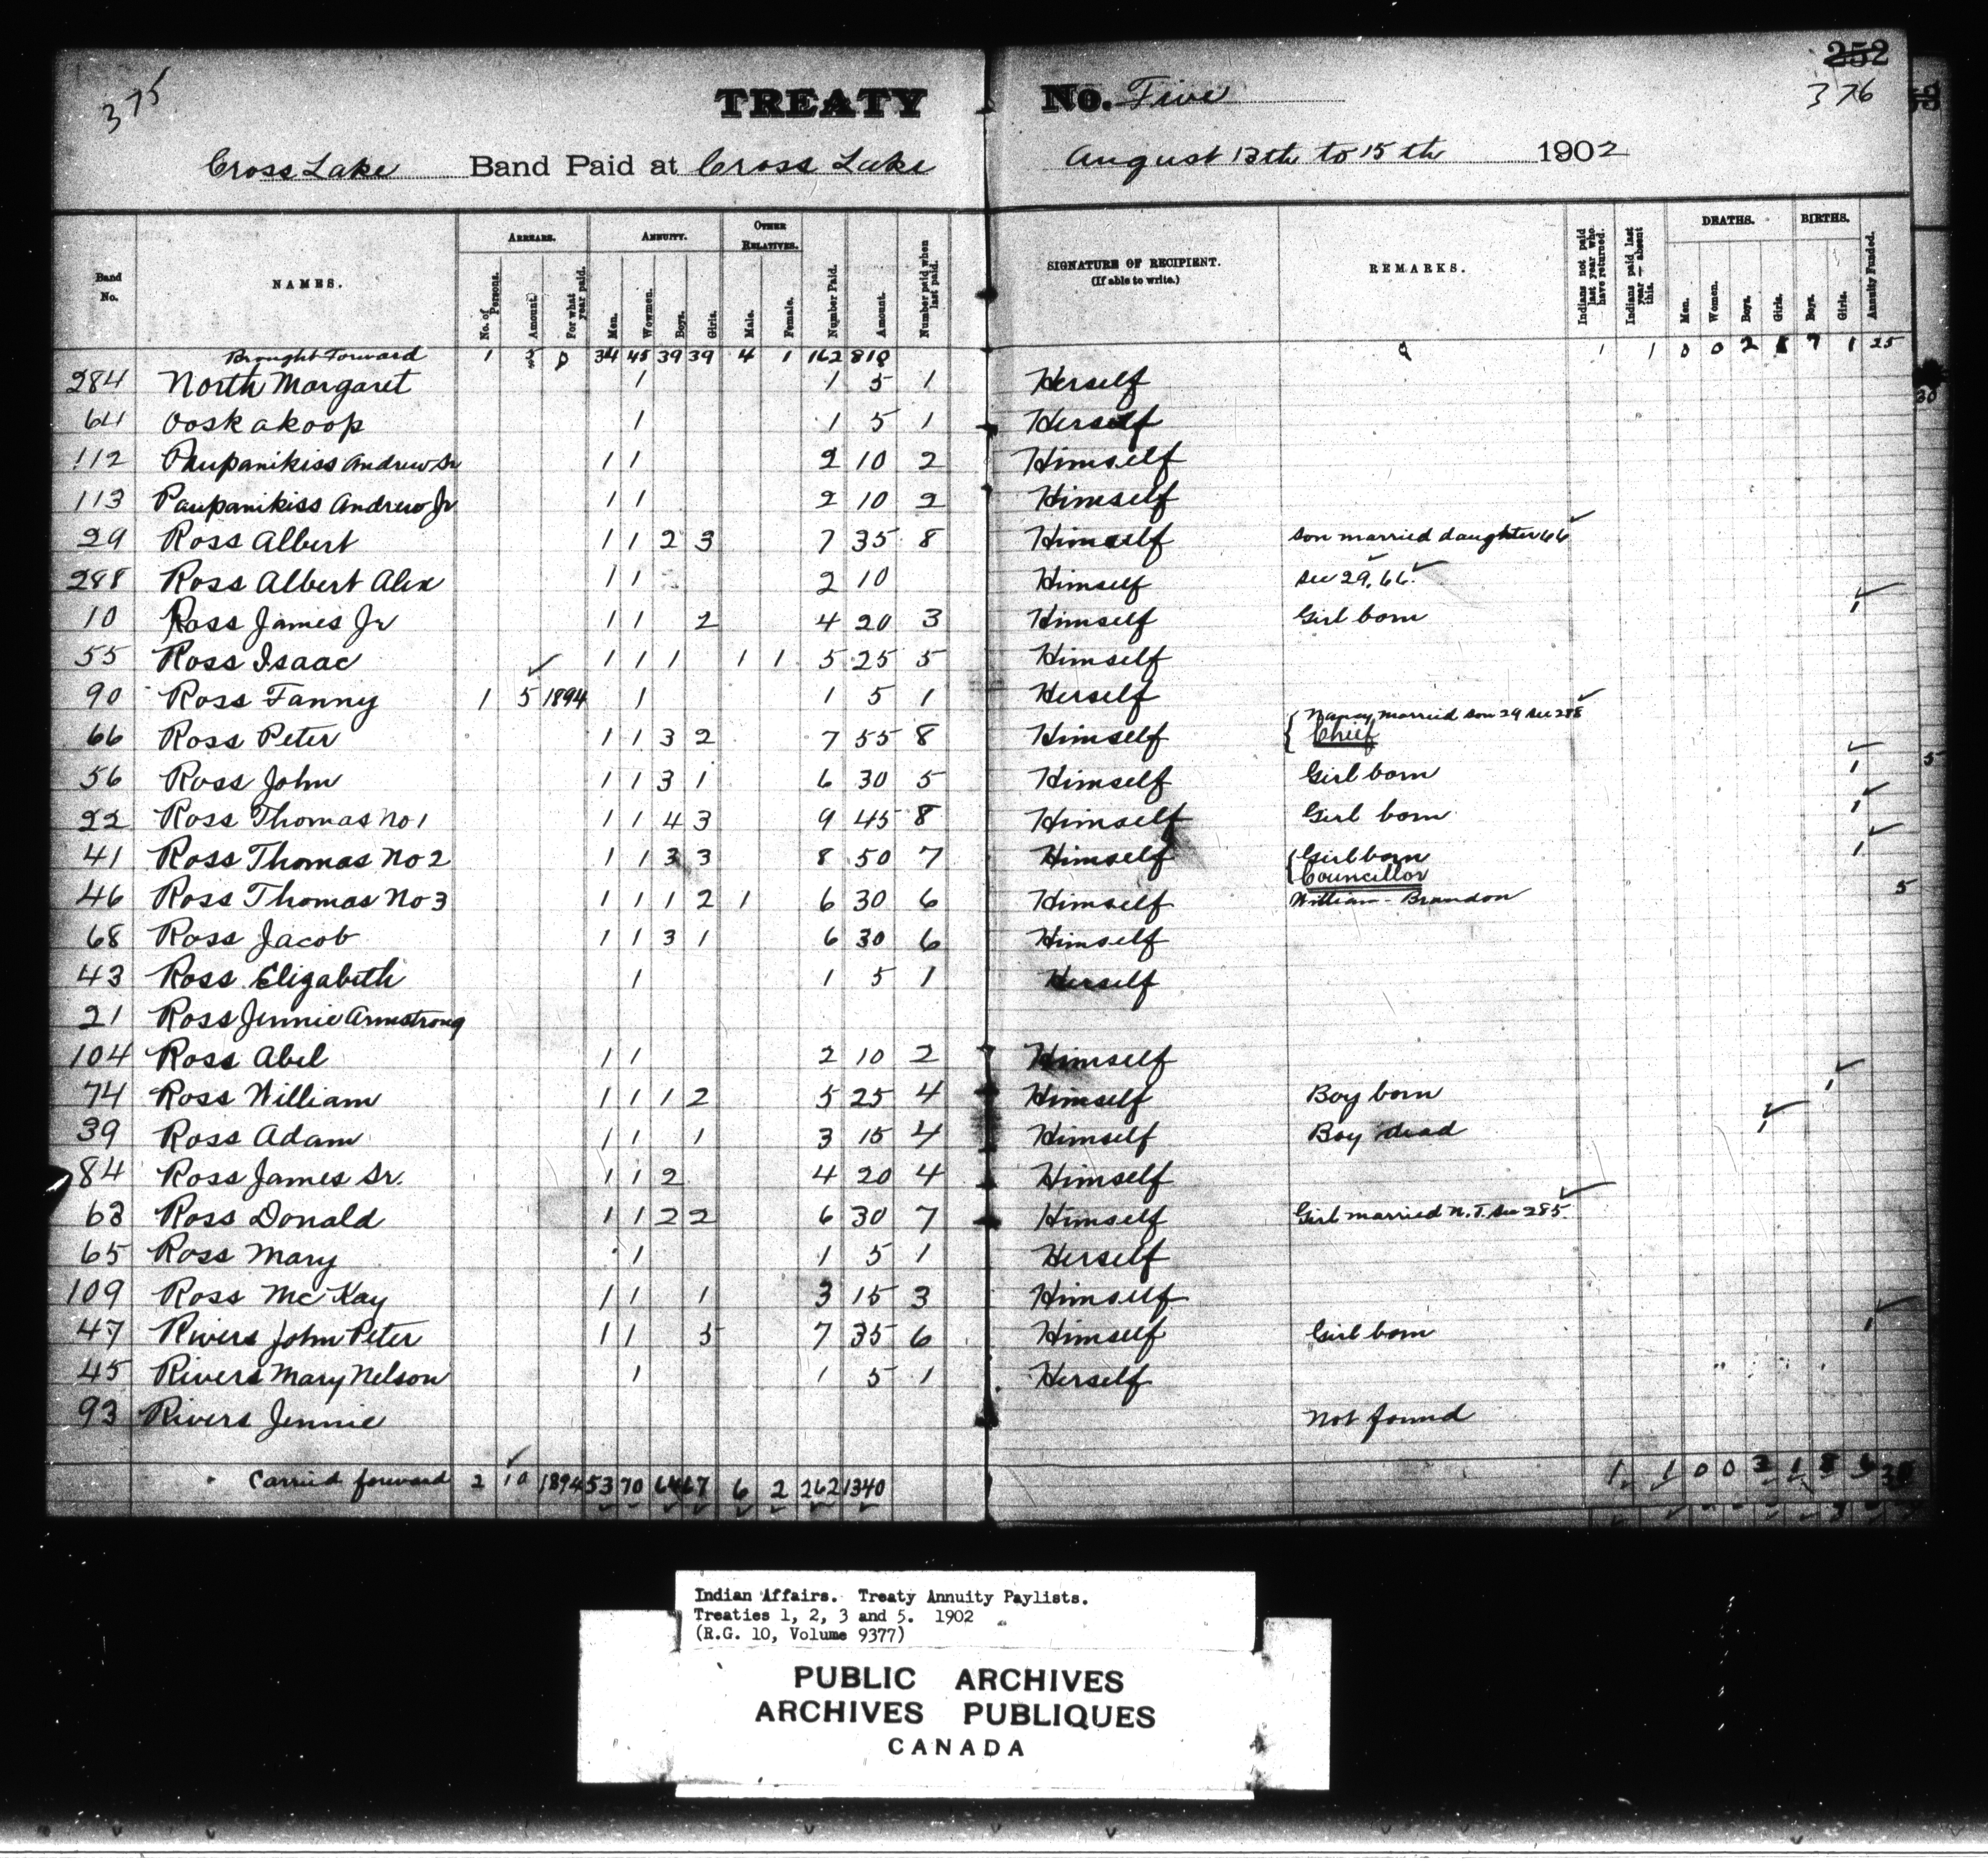 375
TREATY No. Five
252
376
Cross Lake Band Paid at Cross Lake August 13th to 15th 1902
Band No. NAMES. ARREARS. No. of Persons. Amount. For what year paid. ANNUITY. Men. Wowmen. Boys. Girls. OTHER RELATIVES. Male. Female. Number Paid. Amount. Number paid when last paid. SIGNATURE OF RECIPIENT. (If able to write.) REMARKS. Indians not paid last year who have returned. Indians paid last year — absent this. DEATHS. Men. Women. Boys. Girls. BIRTHS. Boys. Girls. Annuity Funded.
Brought Forward 1 5 0 34 45 39 39 4 1 162 810 1 1 0 0 2 1 7 1 25
284 North Margaret 1 1 5 1 Herself
64 Ooskakoop 1 1 5 1 Herself
112 Paupanikiss Andrew Sr 1 1 2 10 2 Himself
113 Paupanikiss Andrew Jr 1 1 2 10 2 Himself
29 Ross Albert 1 1 2 3 7 35 8 Himself son married daughter 66
288 Ross Albert Alex 1 1 2 10 Himself See 29, 66.
10 Ross James Jr 1 1 2 4 20 3 Himself Girl born 1
55 Ross Isaac 1 1 1 1 1 5 25 5 Himself
90 Ross Fanny 1 5 1894 1 1 5 1 Herself
66 Ross Peter 1 1 3 2 7 55 8 Himself Nancy married son 29 See 288
Chief
56 Ross John 1 1 3 1 6 30 5 Himself Girl born 1
22 Ross Thomas No 1 1 1 4 3 9 45 8 Himself Girl born 1
41 Ross Thomas No 2 1 1 3 3 8 50 7 Himself Girl born 1
Councillor
46 Ross Thomas No 3 1 1 1 2 1 6 30 6 Himself William - Brandon 5
68 Ross Jacob 1 1 3 1 6 30 6 Himself
43 Ross Elizabeth 1 1 5 1 Herself
21 Ross Jennie Armstrong
104 Ross Abel 1 1 2 10 2 Himself
74 Ross William 1 1 1 2 5 25 4 Himself Boy born 1
39 Ross Adam 1 1 1 3 15 4 Himself Boy dead 1
84 Ross James Sr. 1 1 2 4 20 4 Himself
63 Ross Donald 1 1 2 2 6 30 7 Himself Girl married N.T. See 285
65 Ross Mary 1 1 5 1 Herself
109 Ross McKay 1 1 1 3 15 3 Himself
47 Rivers John Peter 1 1 5 7 35 6 Himself Girl born 1
45 Rivers Mary Nelson 1 1 5 1 Herself
93 Rivers Jennie Not found
Carried forward 2 10 1894 53 70 64 67 6 2 262 1340 1 1 0 0 3 1 8 6 30
Indian Affairs. Treaty Annuity Paylists.
Treaties 1, 2, 3 and 5. 1902
(R.G. 10, Volume 9377)
PUBLIC ARCHIVES
ARCHIVES PUBLIQUES
CANADA